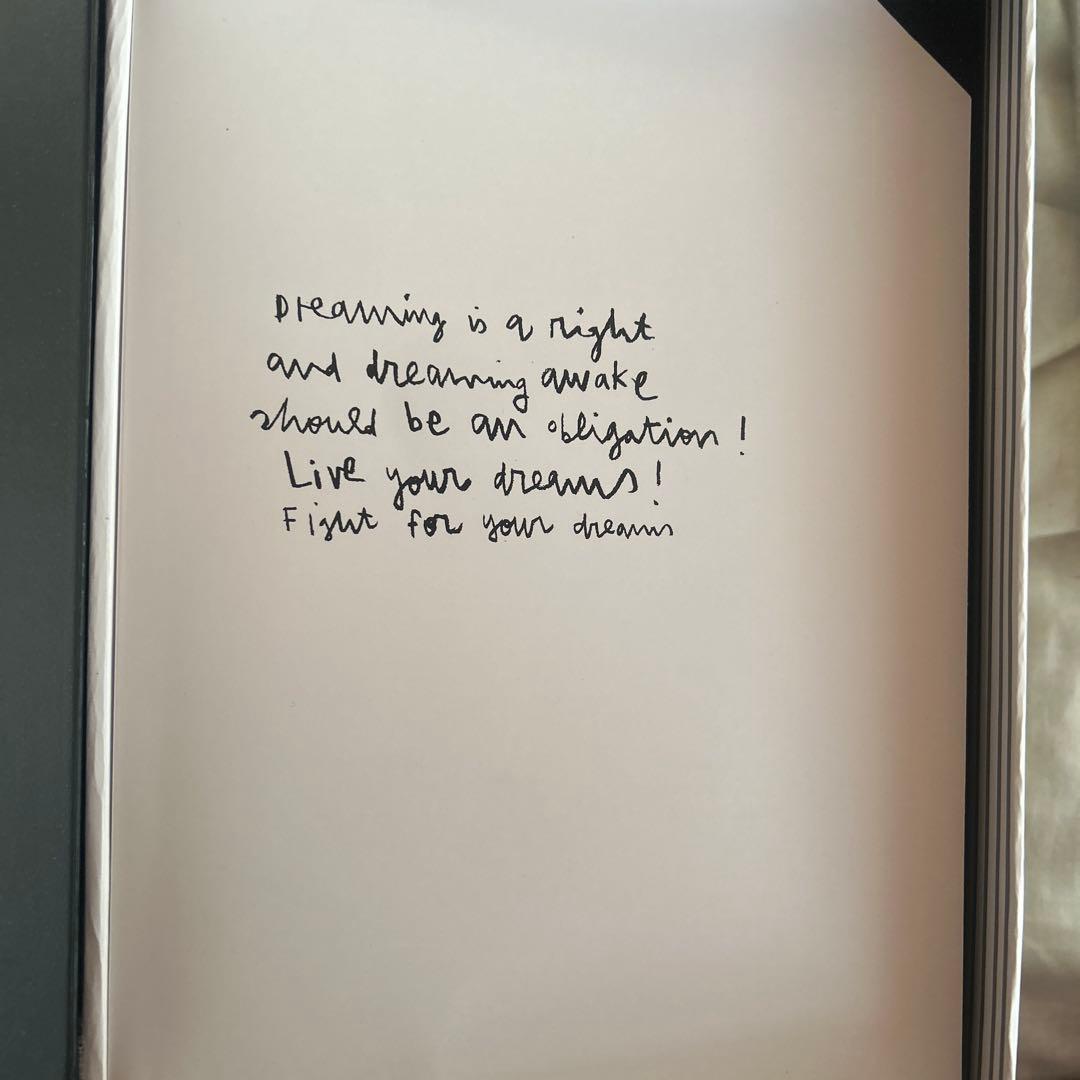 Dreaming is a right
and dreaming awake
should be an obligation!
Live your dreams!
Fight for your dreams